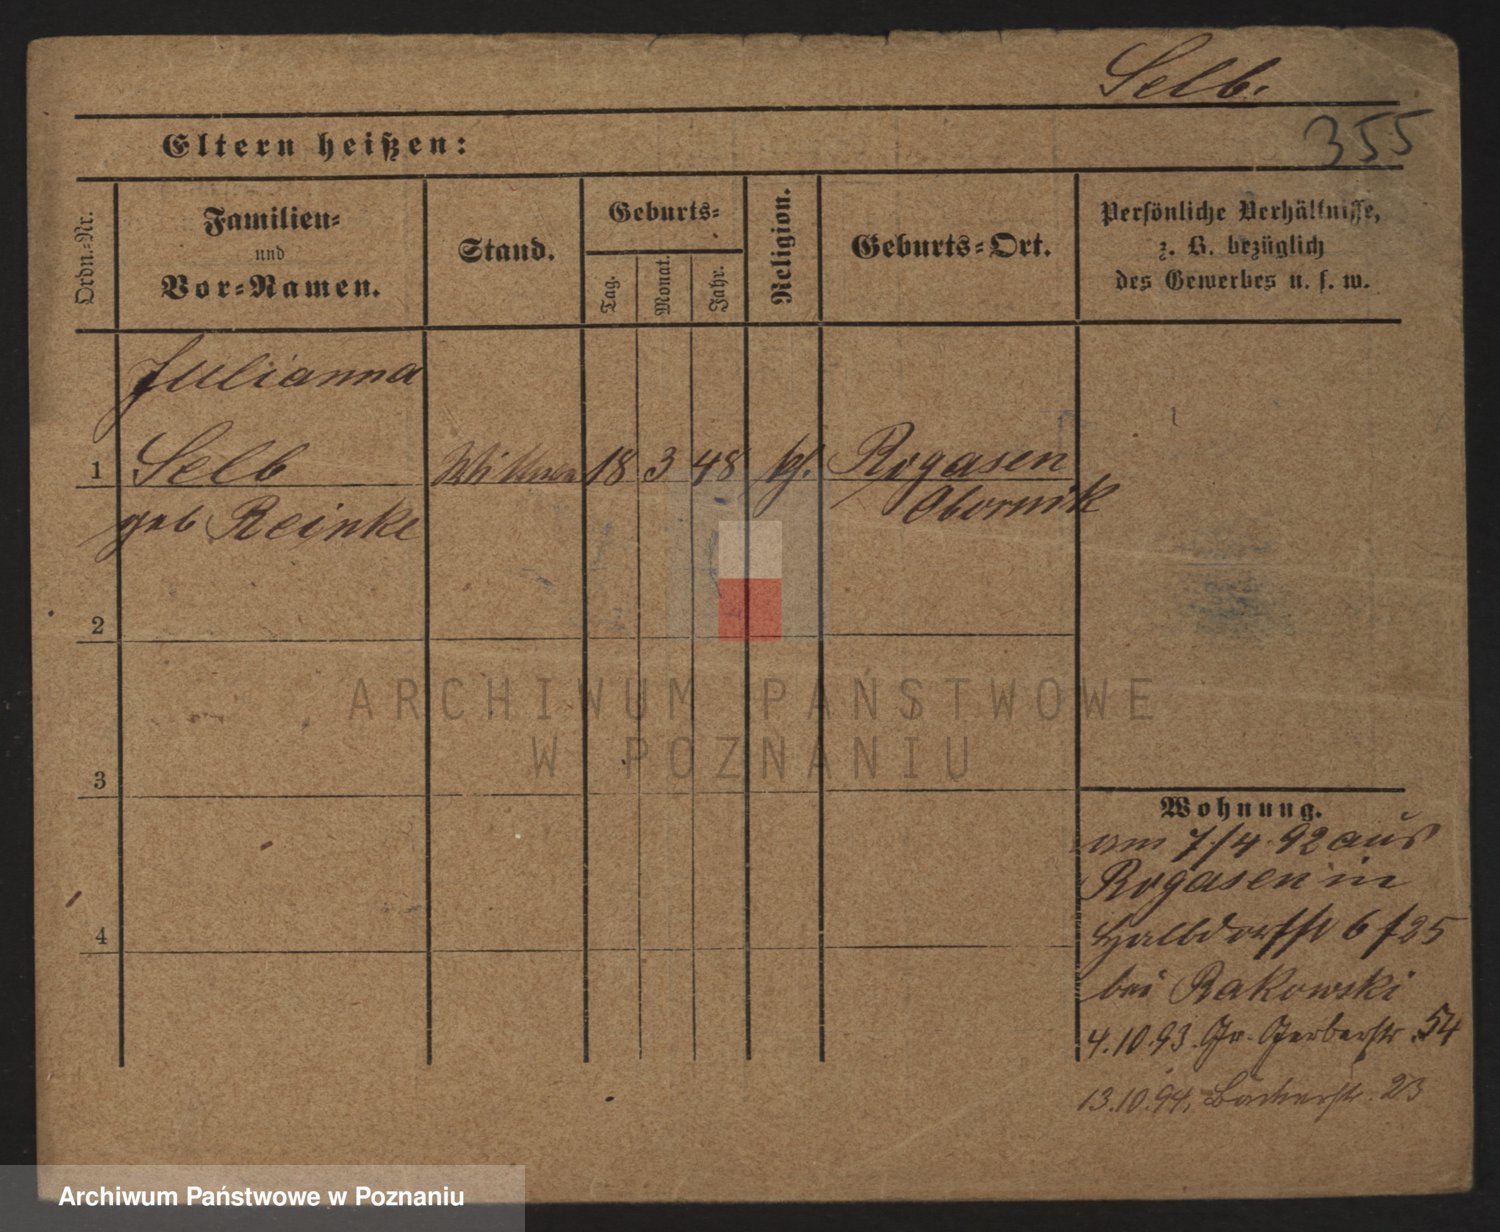 Selb.
355
Eltern heißen:
Ordn.-Nr.
Familien-
und
Vor-Namen.
Stand.
Geburts-
Tag.
Monat.
Jahr.
Religion.
Geburts-Ort.
Persönliche Verhältnisse,
z. B. bezüglich
des Gewerbes u. s. w.
Julianna
1 Selb Wittwe 18 3 48 Rogasen
geb Reinke Obornik
2
3
4
ARCHIWUM PAŃSTWOWE
W POZNANIU
Wohnung.
am 7/4 92 aus
Rogasen in
Halbdorfstr 6 f 25
bei Rakowski
4.10.93. Gr. Gerberstr. 54
13.10.94. Bäckerstr. 23
Archiwum Państwowe w Poznaniu